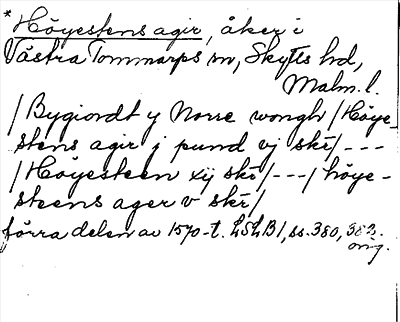 * Höyestens agir, åker i
Västra Tommarps sn, Skytts hd,
Malm. l.
/ Bygiordt y Norre wongh / Höye-
stens agir j pund vj skr / - - -
/ Höyesteen xij skr / - - - / höye-
steens ager v skr /
förra delen av 1570-t. LSLB1, ss. 380, 382.
orig.